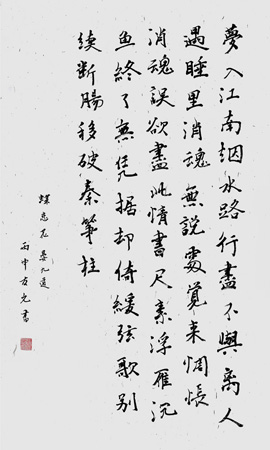 夢入江南烟水路行盡不與離人
遇睡里消魂無説處覺来惆悵
消魂誤欲盡此情書尺素浮雁沉
鱼終了無凭據却倚緩弦歌别
续断腸移破秦筝柱
蝶恋花 晏几道
丙申 書